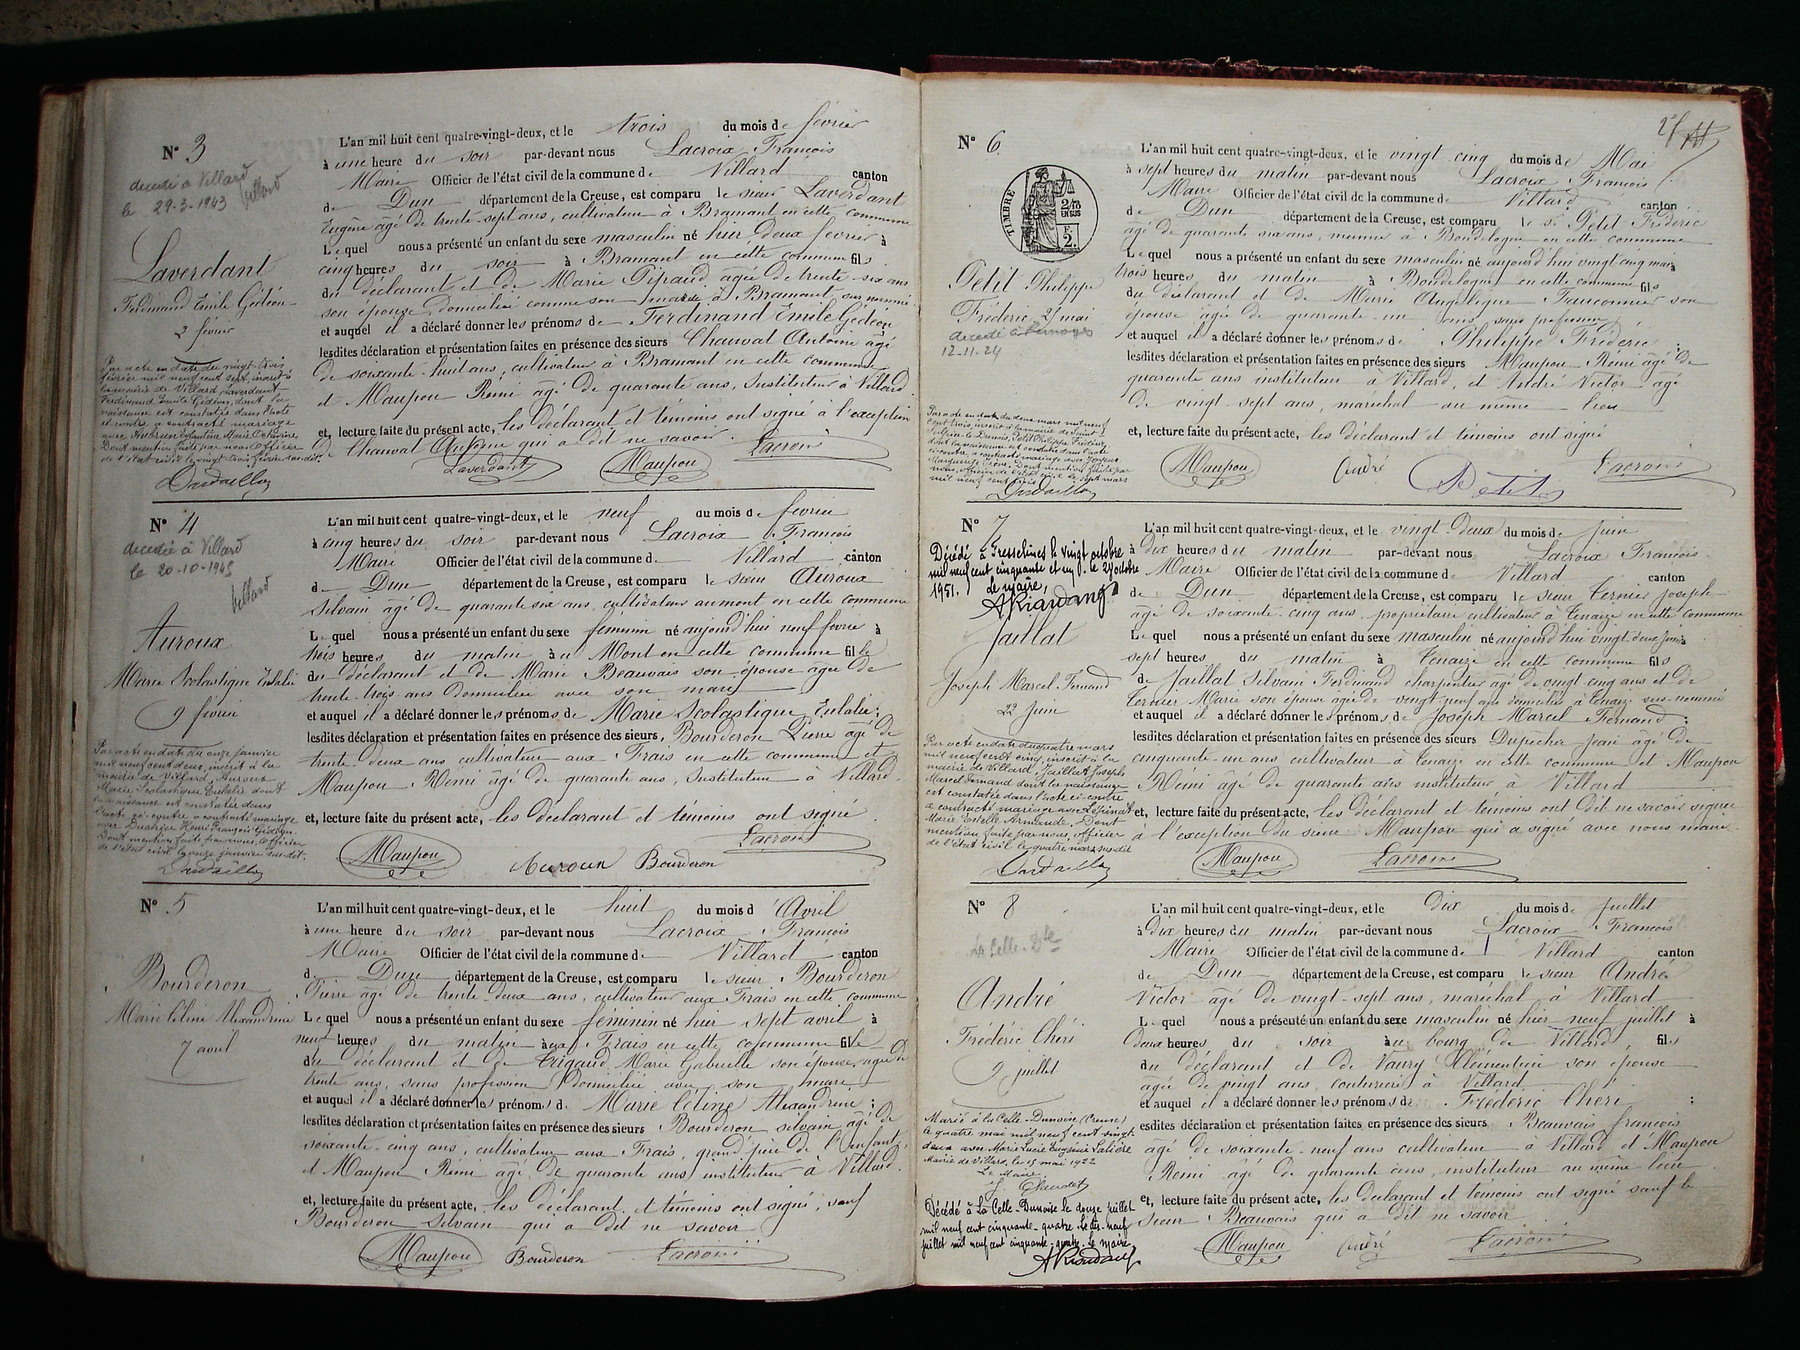 N° 3
décédé à Villard
le 29-3-1943
Villard
Laverdant
Ferdinand Emile Gédéon
2 février
Par acte en date du vingt trois
février mil neuf cent sept, inscrit à
la mairie de Villard, Laverdant
Ferdinand Emile Gédéon, dont la
naissance est constatée dans l'acte
ci-contre a contracté mariage
avec Marie Octavine
Dont mention faite par nous officier
de l'état civil le vingt trois février susdit.
Dardaillon
L'an mil huit cent quatre-vingt-deux, et le trois du mois de février
à une heure du soir par-devant nous Lacroix François
Maire Officier de l'état civil de la commune de Villard canton
de Dun département de la Creuse, est comparu le sieur Laverdant
Eugène âgé de trente-sept ans, cultivateur à Bramant en cette commune
Lequel nous a présenté un enfant du sexe masculin né hier deux février à
cinq heures du soir à Bramant en cette commune fils
du déclarant et de Marie Pipaud, agée de trente-six ans
son épouse domiciliée comme son marie à Bramant sus nommé
et auquel il a déclaré donner les prénoms de Ferdinand Emile Gédéon
lesdites déclaration et présentation faites en présence des sieurs Chauvat Antoine âgé
de soixante-huit ans, cultivateur à Bramant en cette commune
et Maupou Rémi âgé de quarante ans, Instituteur à Villard
et, lecture faite du présent acte, les déclarant et témoins ont signé à l'exception
de Chauvat qui a dit ne savoir.
Laverdant Maupou Lacroix
N° 4
décédée à Villard
le 20-10-1945
Villard
Auroux
Marie Scolastique Eulalie
9 février
Par acte en date du onze janvier
mil neuf cent deux, inscrit à la
mairie de Villard, Auroux
Marie Scolastique Eulalie dont
la naissance est constatée dans
l'acte ci-contre a contracté mariage
avec Henri François Gédéon.
Dont mention faite par nous, officier
de l'état civil le onze janvier susdit.
Dardaillon
L'an mil huit cent quatre-vingt-deux, et le neuf du mois de février
à cinq heures du soir par-devant nous Lacroix François
Maire Officier de l'état civil de la commune de Villard canton
de Dun département de la Creuse, est comparu le sieur Auroux
Silvain âgé de quarante six ans, cultivateur au mont en cette commune
Lequel nous a présenté un enfant du sexe féminin né aujourd'hui neuf fevrie à
trois heures du matin au Mont en cette commune fille
du déclarant et de Marie Beauvais son épouse agée de
trente-trois ans domiciliée avec son mary
et auquel il a déclaré donner les prénoms de Marie Scolastique Eulalie;
lesdites déclaration et présentation faites en présence des sieurs, Bourderon Pierre âgé de
trente deux ans cultivateur aux Frais en cette commune et
Maupou Rémi âgé de quarante ans, Instituteur à Villard.
et, lecture faite du présent acte, les déclarant et témoins ont signé.
Maupou Auroux Bourderon Lacroix
N° 5
Bourderon
Marie Céline Alexandrine
7 avril
L'an mil huit cent quatre-vingt-deux, et le huit du mois d'Avril
à une heure du soir par-devant nous Lacroix François
Maire Officier de l'état civil de la commune de Villard canton
de Dun département de la Creuse, est comparu le sieur Bourderon
Pierre âgé de trente-deux ans, cultivateur aux Frais en cette commune
Lequel nous a présenté un enfant du sexe féminin né hier sept avril à
neuf heures du matin aux Frais en cette commune fille
du déclarant et de Trigaud Marie Gabrielle son épouse, agée de
trente ans, sans profession, domiciliée avec son mari
et auquel il a déclaré donner les prénoms de Marie Céline Alexandrine;
lesdites déclaration et présentation faites en présence des sieurs Bourderon silvain âgé de
soixante-cinq ans, cultivateur aux Frais, grand père de l'enfant,
et Maupou Rémi âgé de quarante ans instituteur à Villard.
et, lecture faite du présent acte, les déclarant et témoins ont signé, sauf
Bourderon Silvain qui a dit ne savoir
Maupou Bourderon Lacroix
N° 6
TIMBRE
2/10
EN SUS
F.
2.
Petit Philippe
Fréderic 25 mai
décédé à Limoges
12-11-24
Par acte en date du deux mars mil neuf
cent trois, inscrit à la mairie de Saint
Sulpice le Dunois, Petit Philippe Fréderic
dont la naissance est constatée dans l'acte
ci-contre, a contracté mariage avec
Marguerite Dont mention faite par
nous, officier de l'état civil le sept mars
mil neuf cent trois
Dardaillon
L'an mil huit cent quatre-vingt-deux, et le vingt cinq du mois de Mai
à sept heures du matin par-devant nous Lacroix François
Maire Officier de l'état civil de la commune de Villard canton
de Dun département de la Creuse, est comparu le sr Petit Fréderic
âgé de quarante six ans, meunier à Boudologne en cette commune
Lequel nous a présenté un enfant du sexe masculin né aujourd'hui vingt cinq mai à
trois heures du matin à Boudologne en cette commune fils
du déclarant et de Marie Angélique Fauconnier son
épouse agée de quarante-un ans sans profession
et auquel il a déclaré donner les prénoms de Philippe Fréderic;
lesdites déclaration et présentation faites en présence des sieurs Maupou Rémi âgé de
quarante ans instituteur à Villard, et André Victor âgé
de vingt sept ans, maréchal au même lieu
et, lecture faite du présent acte, les déclarant et témoins ont signé
Maupou André Petit Lacroix
N° 7
Décédé à Fresselines le vingt octobre
mil neuf cent cinquante et un. le 29 octobre
1951. Le maire,
Jaillat
Joseph Marcel Fernand
22 Juin
Par acte en date du quatre mars
mil neuf cent cinq, inscrit à la
mairie de Villard, Jaillat Joseph
Marcel Fernand dont la naissance
est constatée dans l'acte ci-contre
a contracté mariage avec Lépinat
Marie Estelle Armande. Dont
mention faite par nous, officier
de l'état civil le quatre mars susdit
Dardaillon
L'an mil huit cent quatre-vingt-deux, et le vingt-deux du mois de Juin
à Dix heures du matin par-devant nous Lacroix François
Maire Officier de l'état civil de la commune de Villard canton
de Dun département de la Creuse, est comparu le sieur Ternier Joseph
âgé de soixante-cinq ans, propriétaire cultivateur à Tenaize en cette commune
Lequel nous a présenté un enfant du sexe masculin né aujourd'hui vingt-deux Juin à
sept heures du matin à Tenaize en cette commune fils
de Jaillat Silvain Ferdinand charpentier âgé de vingt-cinq ans et de
Ternier Marie son épouse âgée de vingt-neuf ans domiciliés à Tenaize sus-nommé
et auquel il a déclaré donner les prénoms de Joseph Marcel Fernand;
lesdites déclaration et présentation faites en présence des sieurs Dupêcher Jean âgé de
cinquante-un ans cultivateur à Tenaize en cette commune et Maupou
Rémi âgé de quarante ans instituteur à Villard
et, lecture faite du présent acte, les déclarant et témoins ont dit ne savoir signer
à l'exception du sieur Maupou qui a signé avec nous maire.
Maupou Lacroix
N° 8
La Celle-Dse
André
Fréderic Chéri
9 juillet
Marié à la Celle-Dunoise (Creuse)
le quatre mai mil neuf cent vingt-
deux avec Marie Lucie Eugénie Lalière
Mairie de Villard, le 15 mai 1922
Le Maire
Décédé à La Celle-Dunoise le douze juillet
mil neuf cent cinquante-quatre. Le dix-neuf
juillet mil neuf cent cinquante-quatre. Le Maire
L'an mil huit cent quatre-vingt-deux, et le dix du mois de juillet
à dix heures du matin par-devant nous Lacroix François
Maire Officier de l'état civil de la commune de Villard canton
de Dun département de la Creuse, est comparu le sieur André
Victor âgé de vingt-sept ans, maréchal à Villard
Lequel nous a présenté un enfant du sexe masculin né hier neuf juillet à
deux heures du soir au bourg de Villard fils
du déclarant et de Vaury Clémentine son épouse
agée de vingt ans, couturière à Villard
et auquel il a déclaré donner les prénoms de Fréderic Chéri;
lesdites déclaration et présentation faites en présence des sieurs Beauvais françois
âgé de soixante-neuf ans cultivateur à Villard et Maupou
Rémi âgé de quarante ans, instituteur au même lieu
et, lecture faite du présent acte, les déclarant et témoins ont signé sauf le
sieur Beauvais qui a dit ne savoir
Maupou André Lacroix